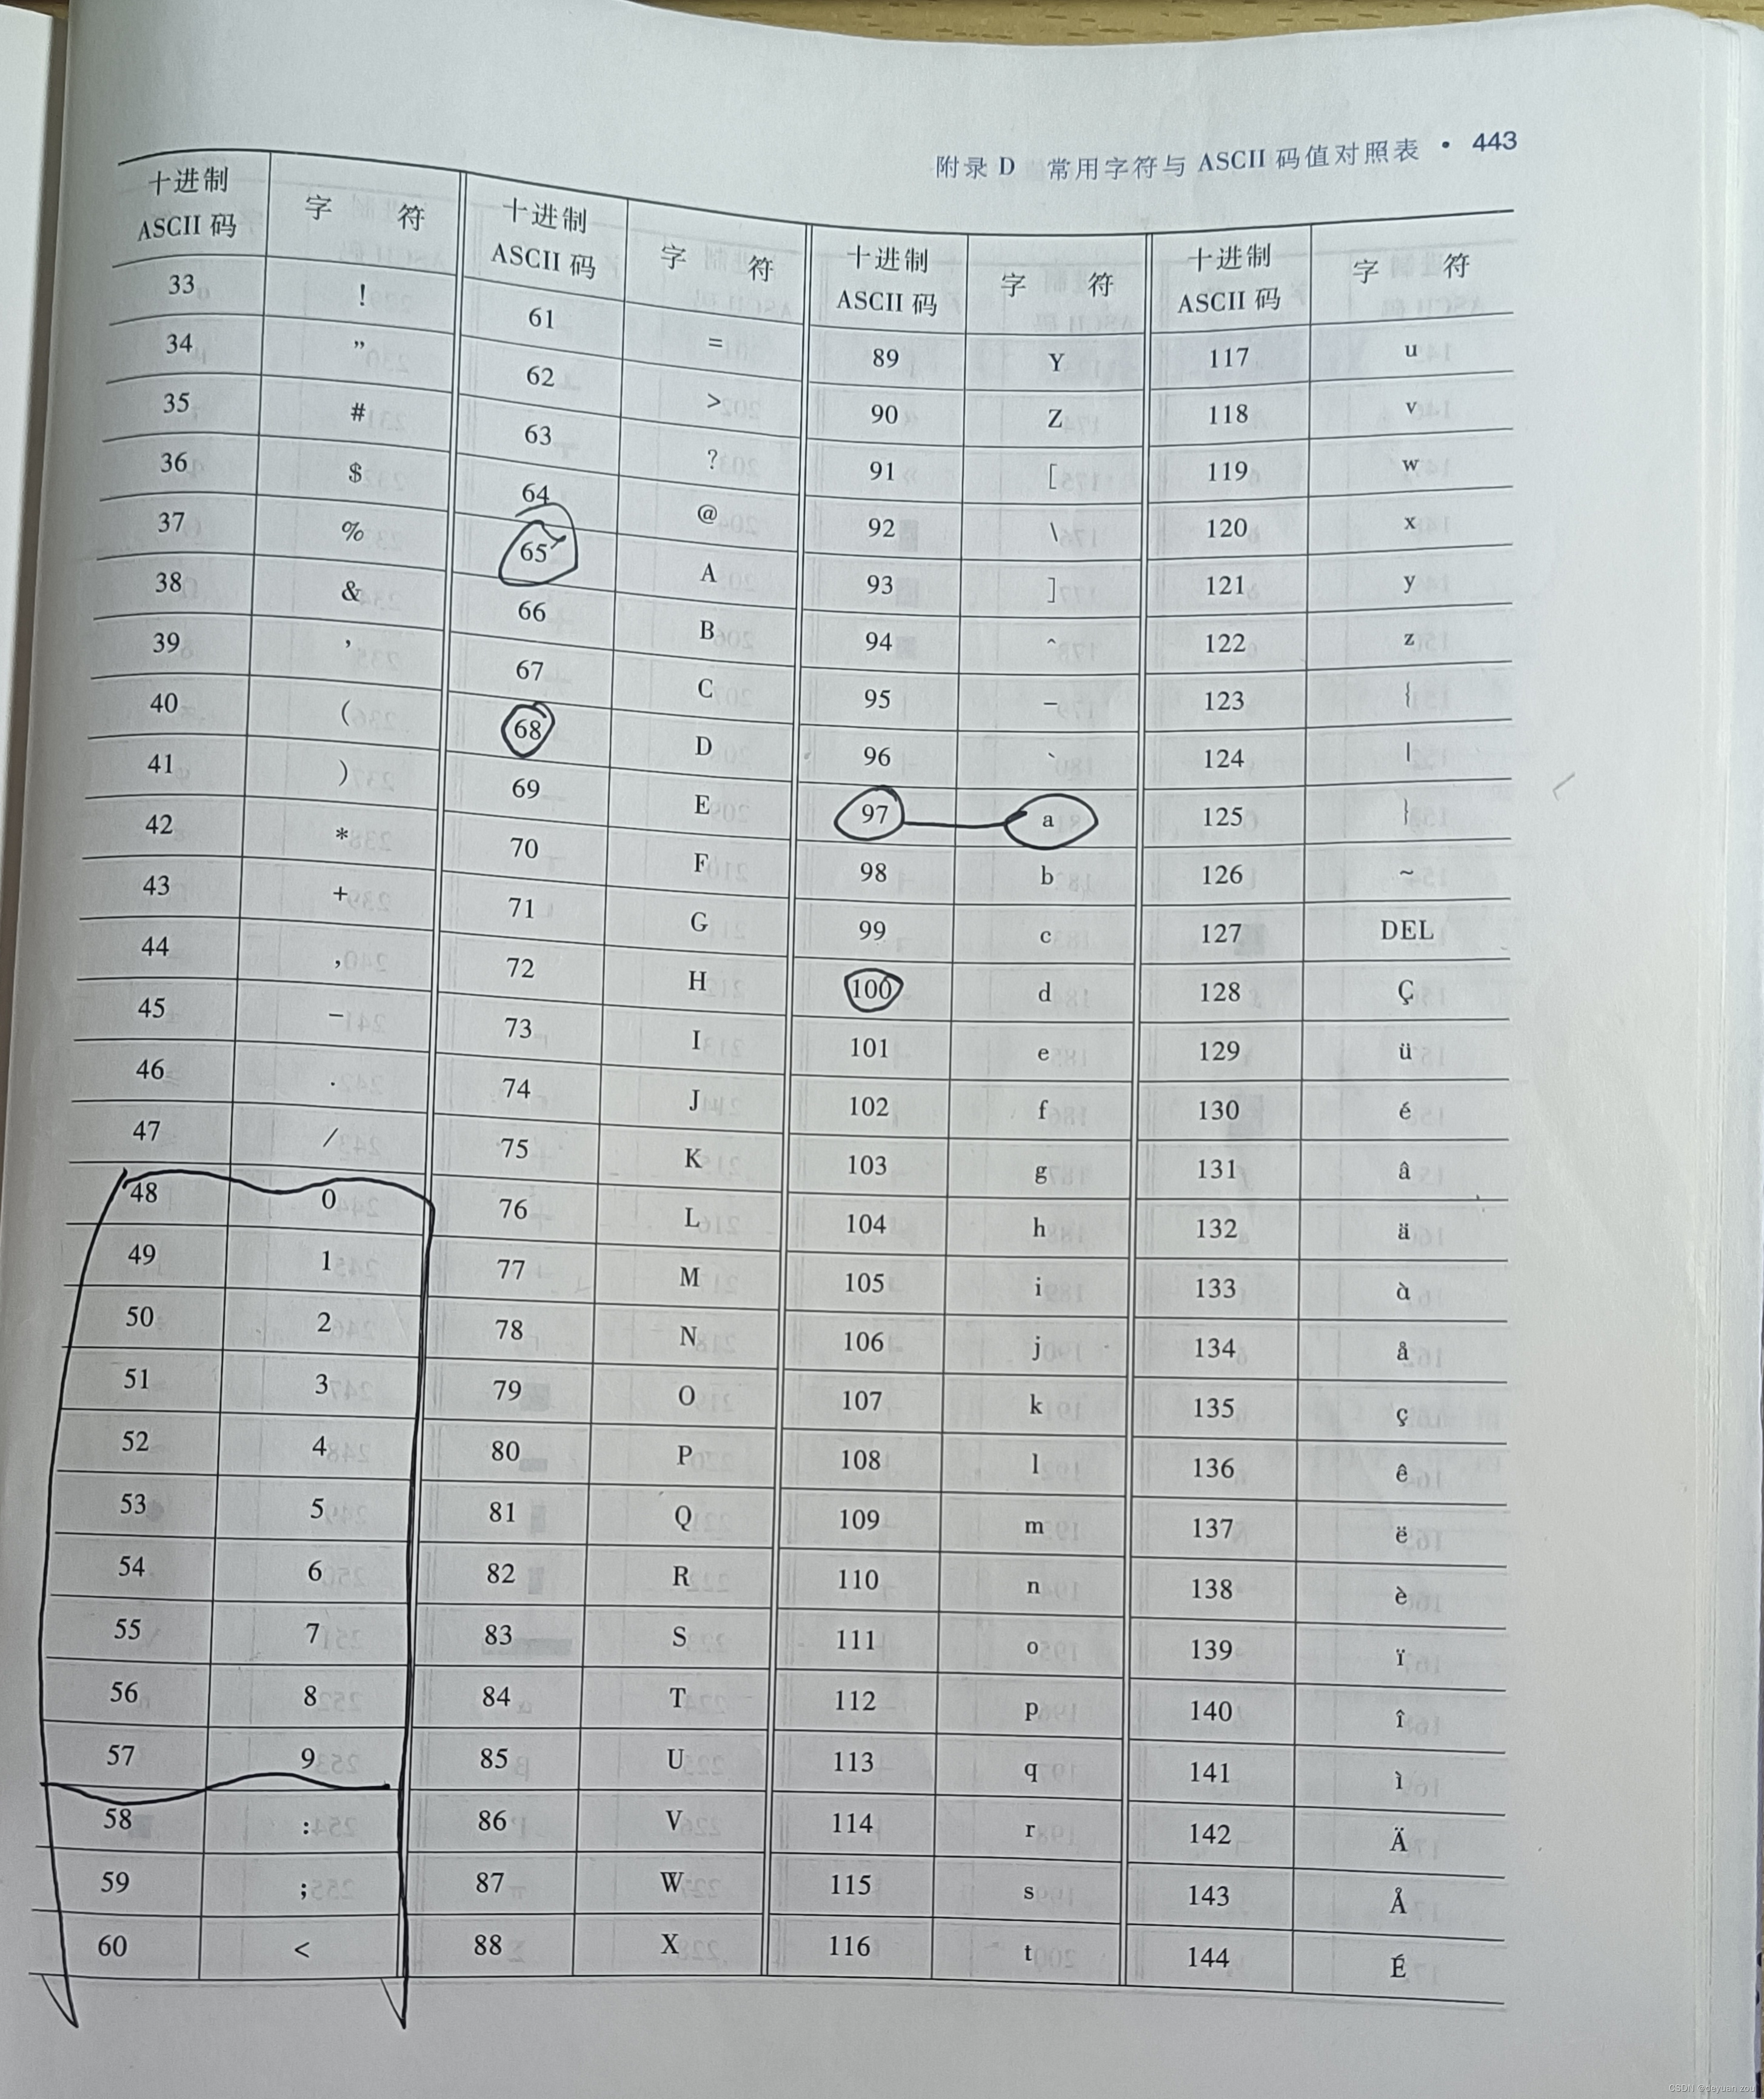 附录 D 常用字符与 ASCII 码值对照表 • 443
十进制 ASCII 码 字 符 十进制 ASCII 码 字 符 十进制 ASCII 码 字 符 十进制 ASCII 码 字 符
33 ! 61 = 89 Y 117 u
34 ” 62 > 90 Z 118 v
35 # 63 ? 91 [ 119 w
36 $ 64 @ 92 \ 120 x
37 % 65 A 93 ] 121 y
38 & 66 B 94 ˆ 122 z
39 ’ 67 C 95 – 123 {
40 ( 68 D 96 ` 124 |
41 ) 69 E 97 a 125 }
42 * 70 F 98 b 126 ~
43 + 71 G 99 c 127 DEL
44 , 72 H 100 d 128 Ç
45 – 73 I 101 e 129 ü
46 . 74 J 102 f 130 é
47 / 75 K 103 g 131 â
48 0 76 L 104 h 132 ä
49 1 77 M 105 i 133 à
50 2 78 N 106 j 134 å
51 3 79 O 107 k 135 ç
52 4 80 P 108 l 136 ê
53 5 81 Q 109 m 137 ë
54 6 82 R 110 n 138 è
55 7 83 S 111 o 139 ï
56 8 84 T 112 p 140 î
57 9 85 U 113 q 141 ì
58 : 86 V 114 r 142 Ä
59 ; 87 W 115 s 143 Å
60 < 88 X 116 t 144 É
CSDN @deyuan zou